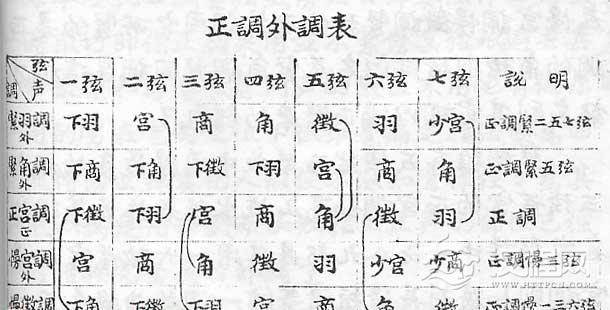 正調外調表
弦 声 調 一弦 二弦 三弦 四弦 五弦 六弦 七弦 說明
緊羽調外 下羽 宮 商 角 徵 羽 少宮 正調緊二五七弦
緊角調外 下商 下角 下徵 下羽 宮 商 角 正調緊五弦
正宮調正 下徵 下羽 宮 商 角 徵 羽 正調
慢宮調外 宮 商 角 徵 羽 少宮 少商 正調慢三弦
慢徵調 下角 下徵 下羽 宮 商 角 徵 正調慢一三六弦